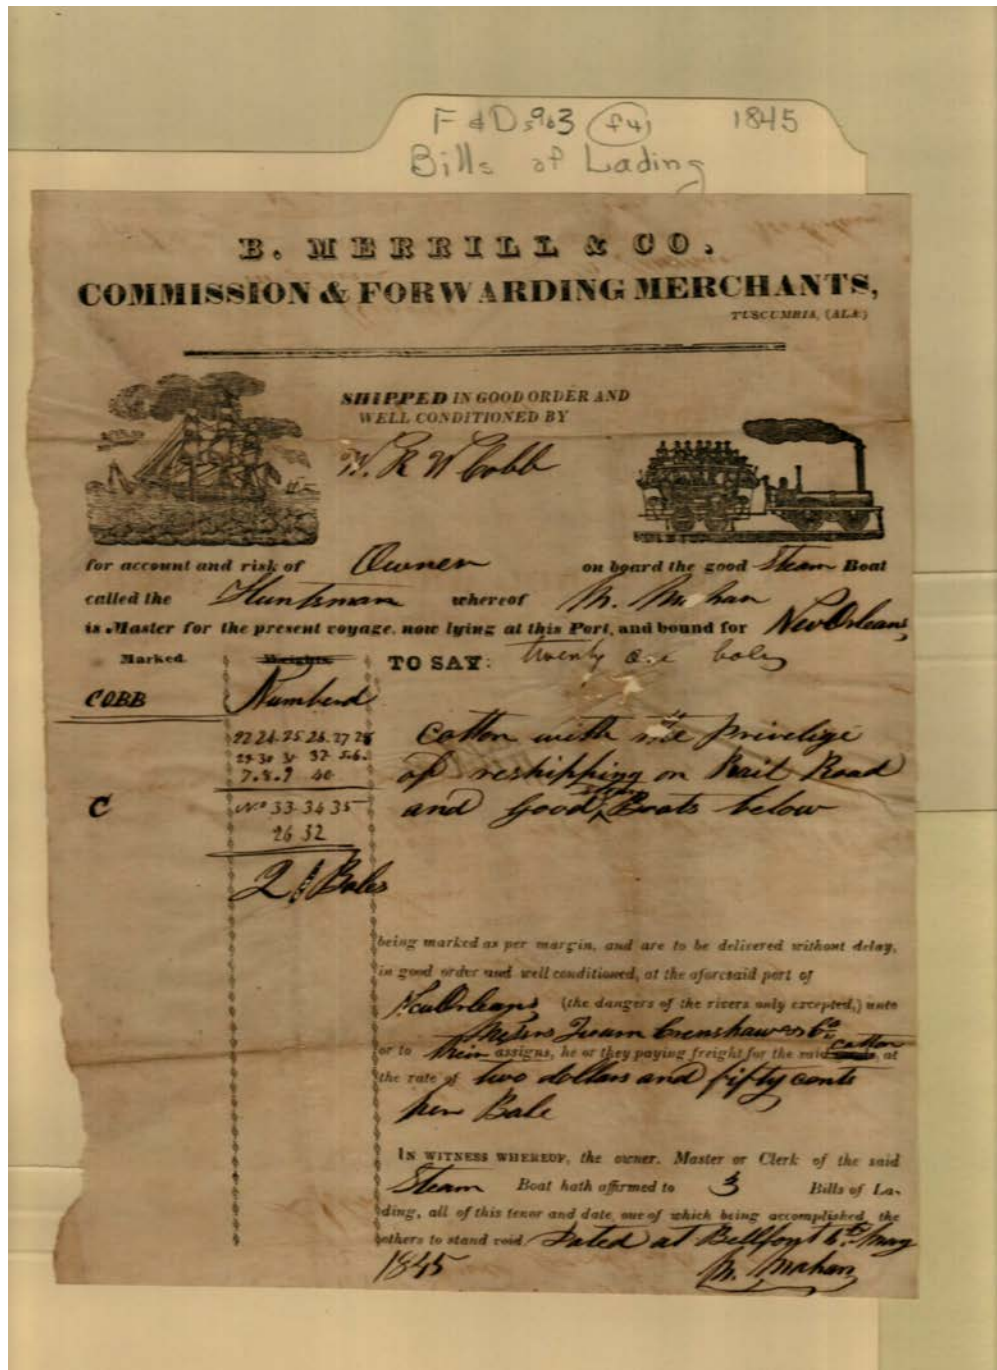 F & D 903 (f4) 1845
Bills of Lading
B. MERRILL & CO.
COMMISSION & FORWARDING MERCHANTS,
TUSCUMBIA, (ALA.)
SHIPPED IN GOOD ORDER AND
WELL CONDITIONED BY
W. R. W Cobb
for account and risk of Owner on board the good Steam Boat
called the Huntsman whereof M. Mahan
is Master for the present voyage, now lying at this Port, and bound for New Orleans
Marked. Weights. TO SAY: twenty one bales
COBB Numberd
22 24. 25 26. 27 28 Cotton with the Privelige
29 30 31 37 5.6. of reshipping on Rail Road
7. 8. 9 40
C No 33 34 35 and good Steam Boats below
26 32
21 Bales
being marked as per margin, and are to be delivered without delay,
in good order and well conditioned, at the aforesaid port of
New Orleans (the dangers of the rivers only excepted,) unto
Messrs Crenshaw & Co
or to their assigns, he or they paying freight for the said cotton, at
the rate of two dollars and fifty cents
per Bale
IN WITNESS WHEREOF, the owner, Master or Clerk of the said
Steam Boat hath affirmed to 3 Bills of La-
ding, all of this tenor and date, one of which being accomplished, the
others to stand void. Dated at Bellfont 6th May
1845 M. Mahan